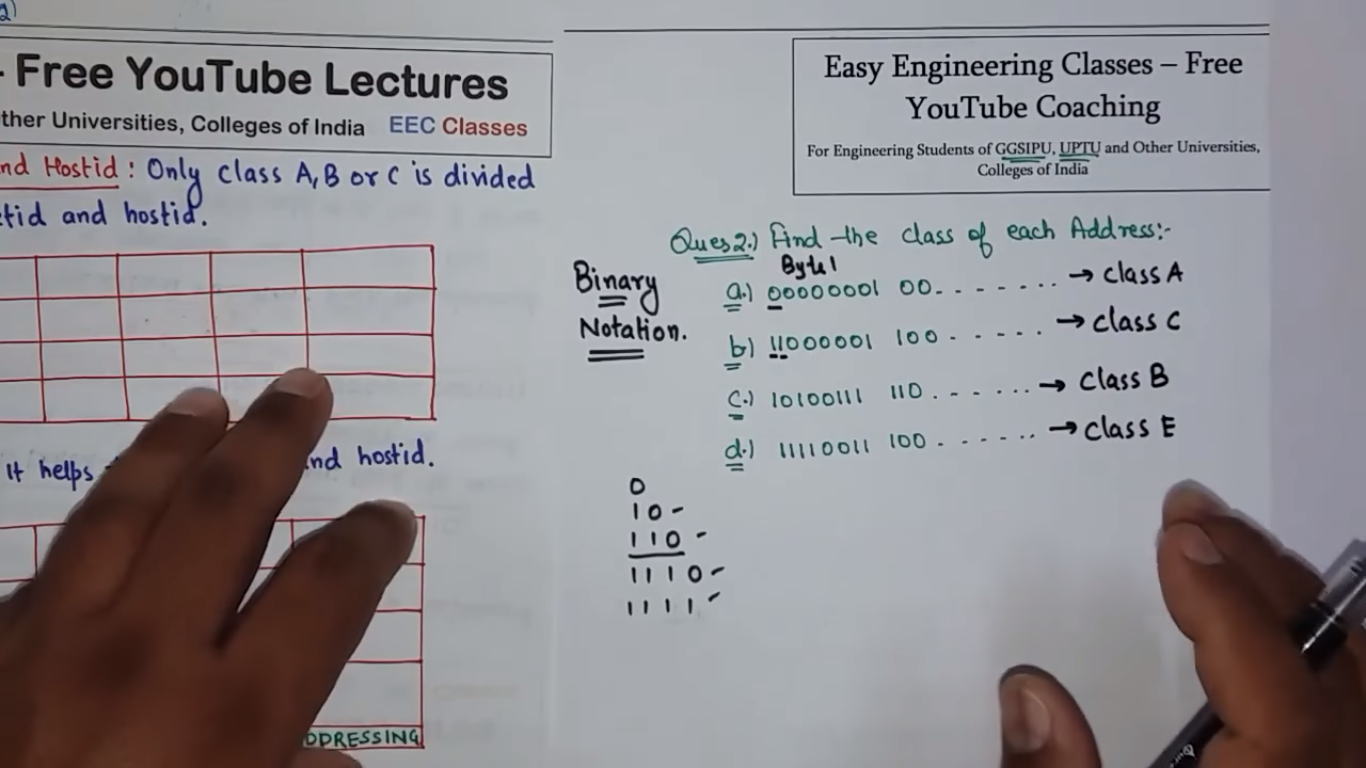 2)
- Free YouTube Lectures
ther Universities, Colleges of India EEC Classes
nd Hostid : Only class A, B or C is divided
tid and hostid.
It helps
nd hostid.
DDRESSING
Easy Engineering Classes – Free
YouTube Coaching
For Engineering Students of GGSIPU, UPTU and Other Universities,
Colleges of India
Ques2.) Find the class of each Address:-
Binary
Notation.
Byte1
a.) 00000001 00. - - - - - - . → class A
b) 11000001 100 - - - - - → class C
c.) 10100111 110 . - - - - . . → class B
d.) 11110011 100 - - - - - . . → class E
0
10-
110 -
1110-
1111-